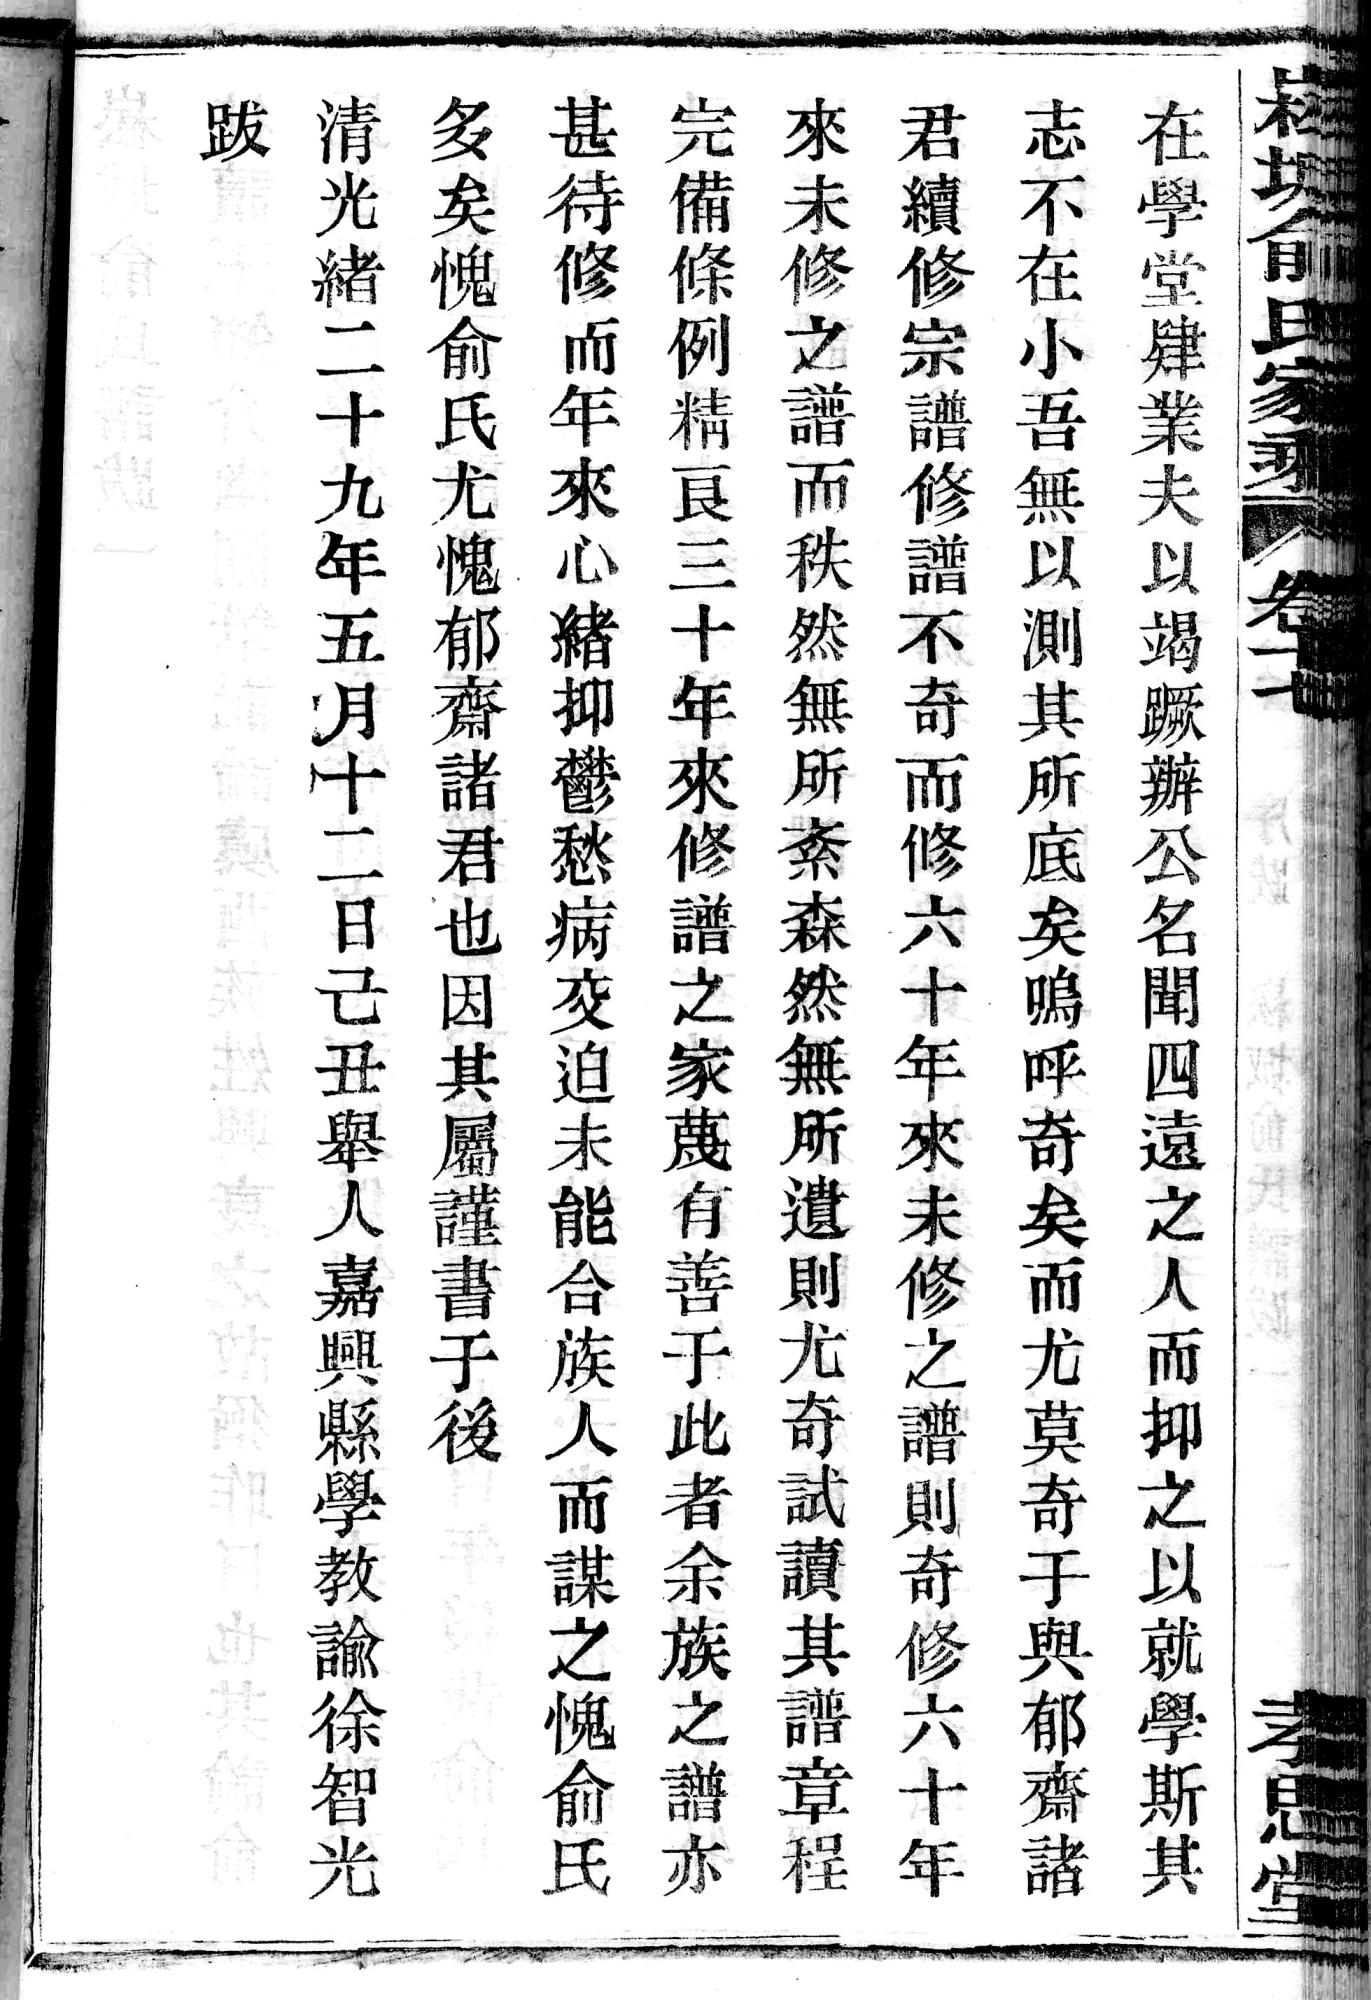 俞氏家乘 卷十七 孝思堂
在學堂肄業夫以竭蹶辦公名聞四遠之人而抑之以就學斯其
志不在小吾無以測其所底矣嗚呼奇矣而尤莫奇于與郁齋諸
君續修宗譜修譜不奇而修六十年來未修之譜則奇修六十年
來未修之譜而秩然無所紊森然無所遺則尤奇試讀其譜章程
完備條例精良三十年來修譜之家蔑有善于此者余族之譜亦
甚待修而年來心緒抑鬱愁病交迫未能合族人而謀之愧俞氏
多矣愧俞氏尤愧郁齋諸君也因其屬謹書于後
清光緒二十九年五月十二日己丑舉人嘉興縣學教諭徐智光
跋